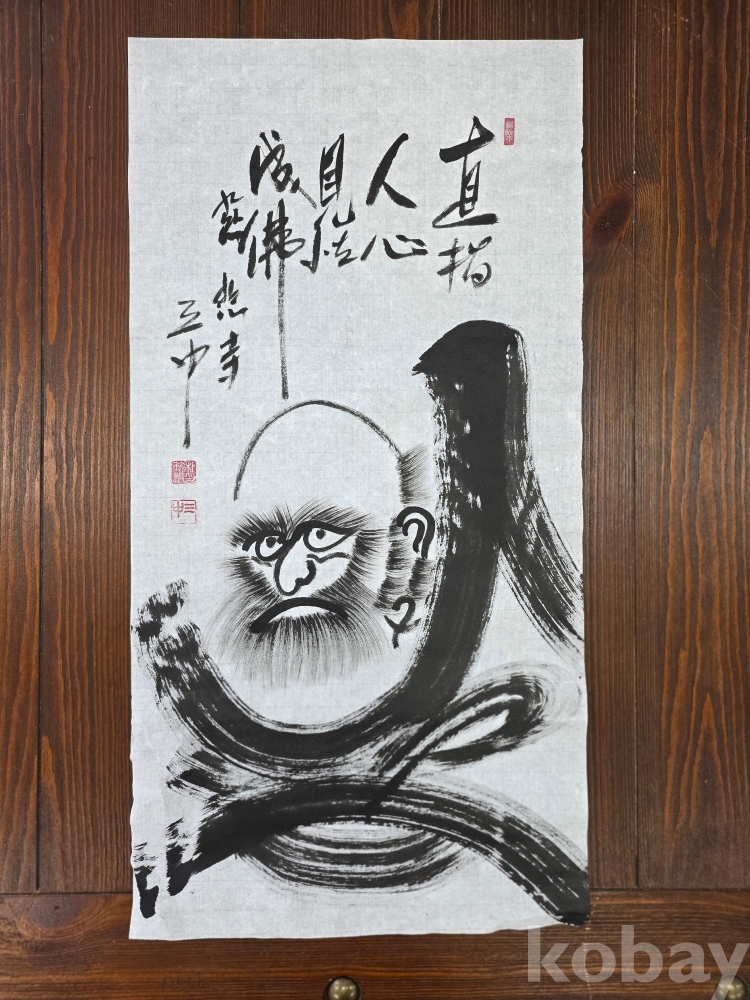 直指
人心
見性
成佛
悲寺
三中
三中
kobay